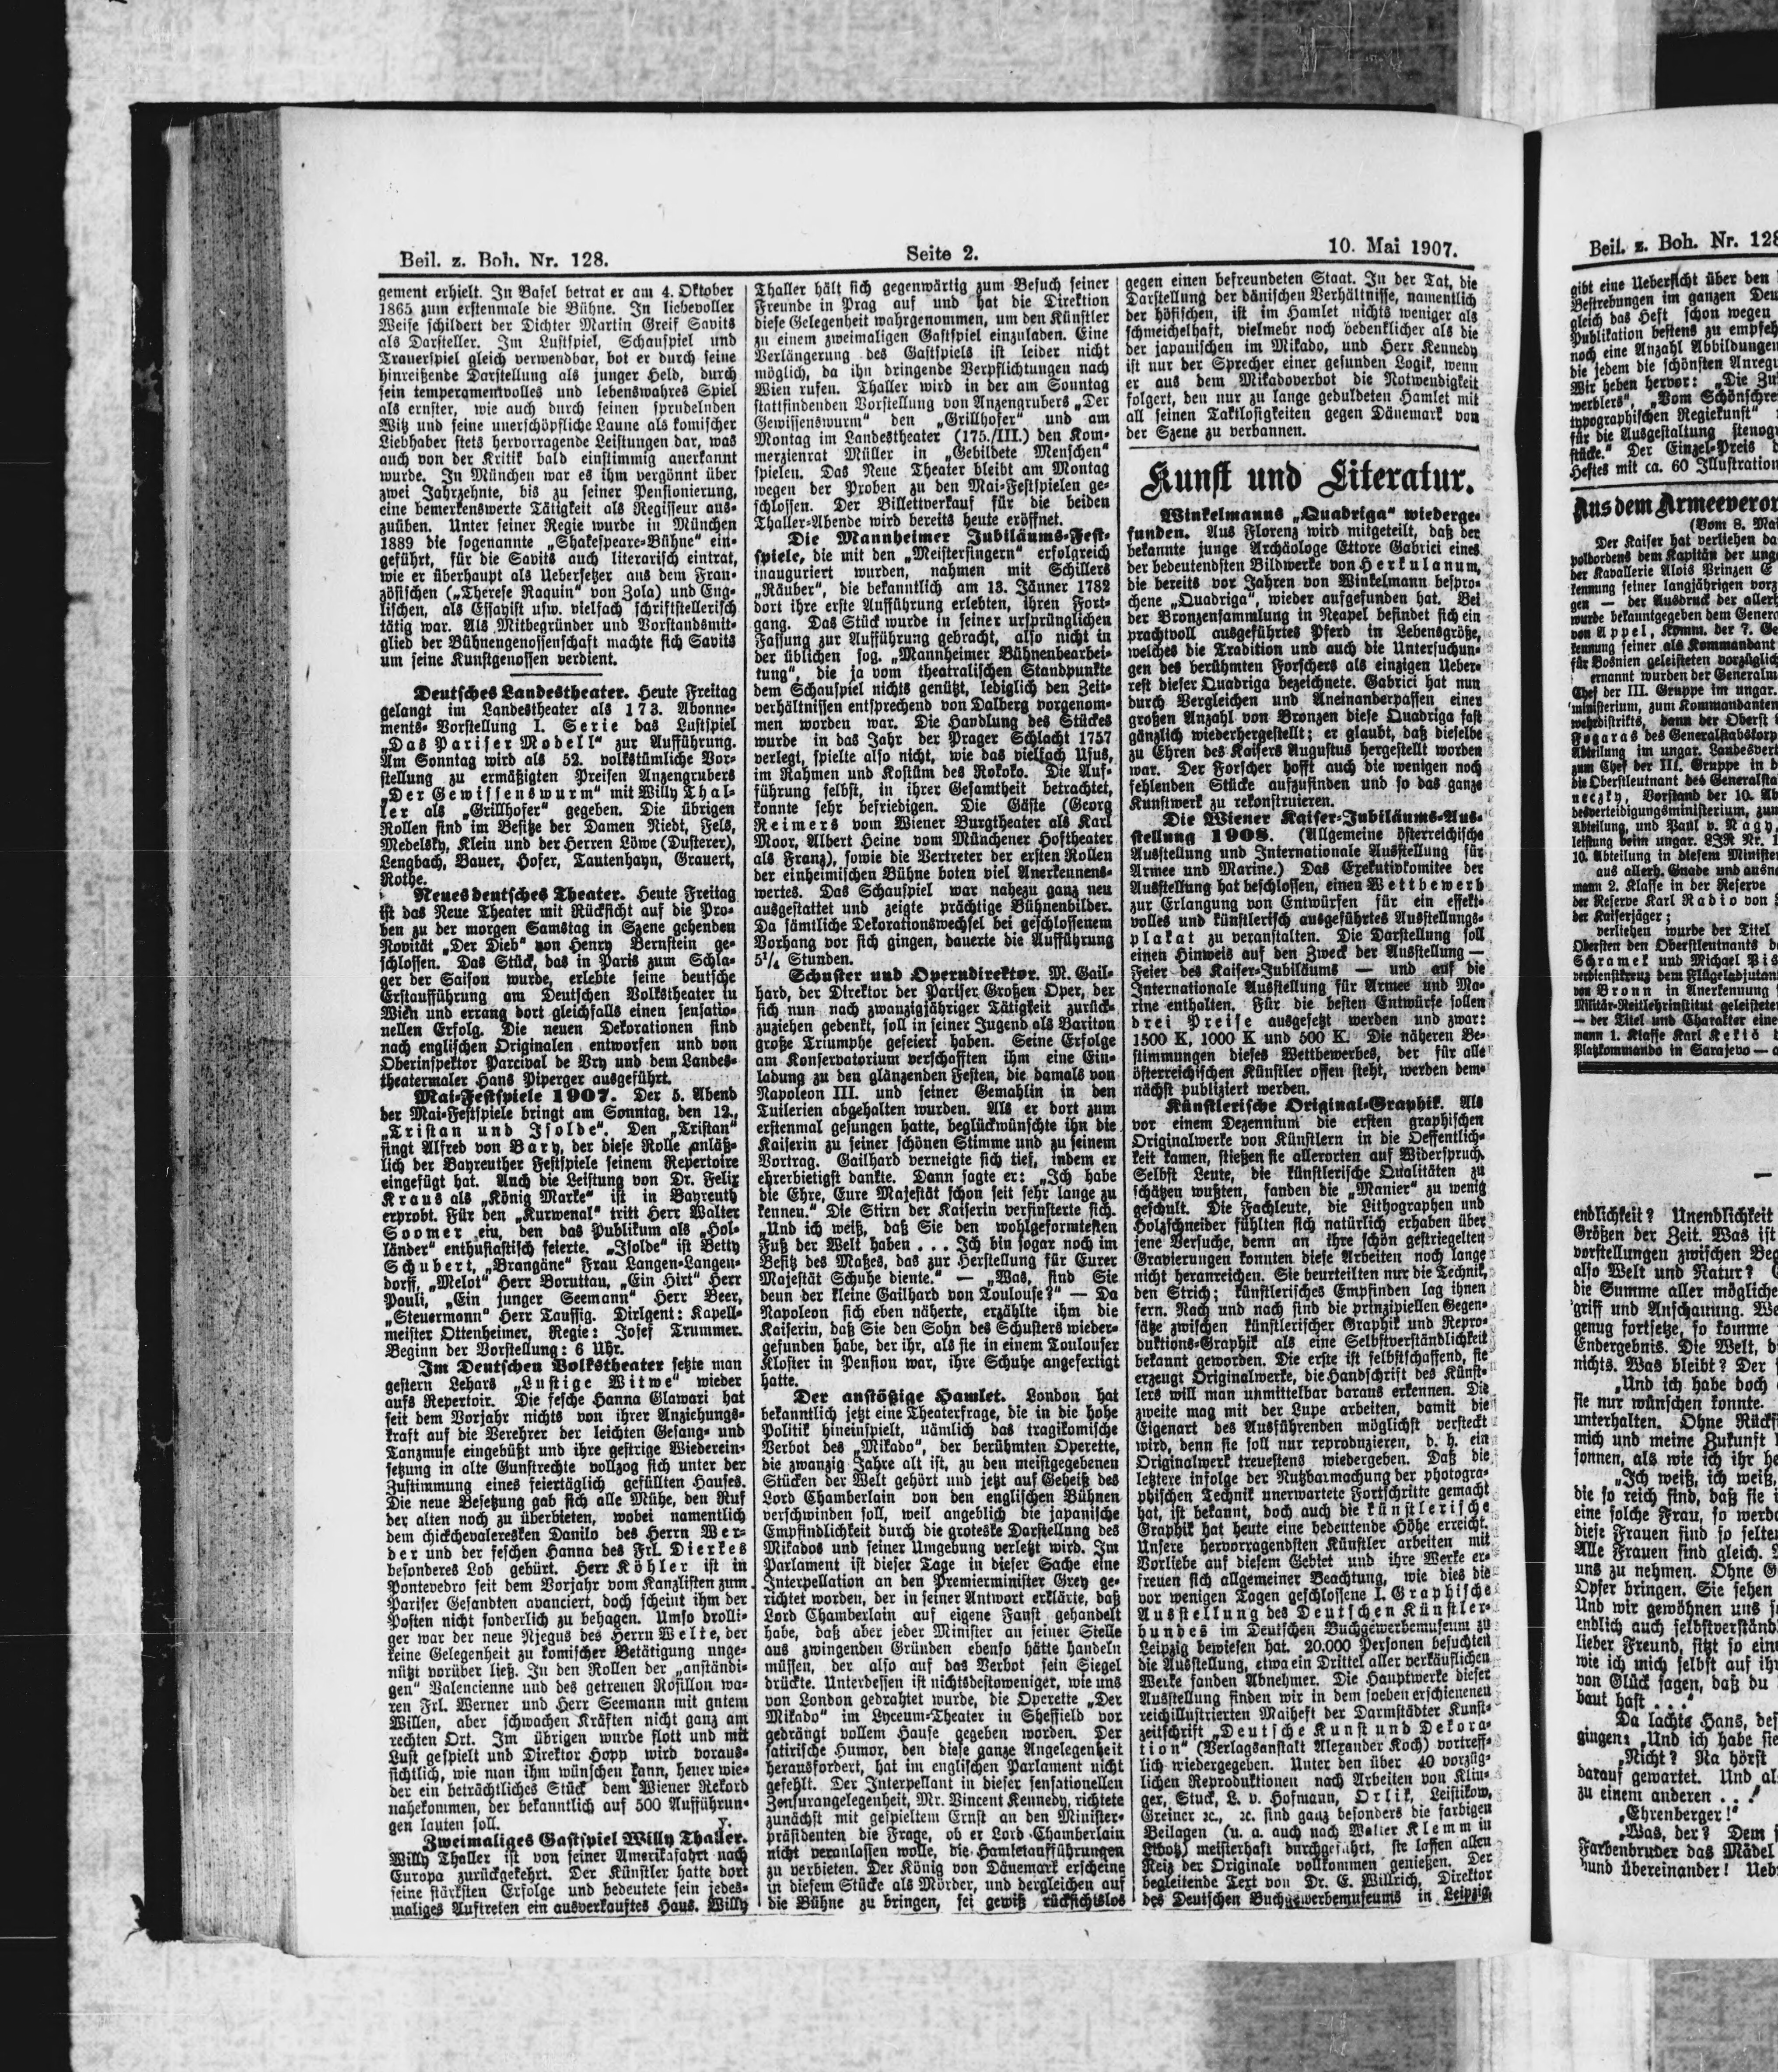 Beil. z. Boh. Nr. 128.
Seite 2.
10. Mai 1907.
gement erhielt. In Basel betrat er am 4. Oktober
1865 zum erstenmale die Bühne. In liebevoller
Weise schildert der Dichter Martin Greif Savits
als Darsteller. Im Lustspiel, Schauspiel und
Trauerspiel gleich verwendbar, bot er durch seine
hinreißende Darstellung als junger Held, durch
sein temperamentvolles und lebenswahres Spiel
als ernster, wie auch durch seinen sprudelnden
Witz und seine unerschöpfliche Laune als komischer
Liebhaber stets hervorragende Leistungen dar, was
auch von der Kritik bald einstimmig anerkannt
wurde. In München war es ihm vergönnt über
zwei Jahrzehnte, bis zu seiner Pensionierung,
eine bemerkenswerte Tätigkeit als Regisseur aus-
zuüben. Unter seiner Regie wurde in München
1889 die sogenannte „Shakespeare-Bühne“ ein-
geführt, für die Savits auch literarisch eintrat,
wie er überhaupt als Uebersetzer aus dem Fran-
zösischen („Therese Raquin“ von Zola) und Eng-
lischen, als Essayist usw. vielfach schriftstellerisch
tätig war. Als Mitbegründer und Vorstandsmit-
glied der Bühnengenossenschaft machte sich Savits
um seine Kunstgenossen verdient.
Deutsches Landestheater. Heute Freitag
gelangt im Landestheater als 173. Abonne-
ments-Vorstellung I. Serie das Lustspiel
„Das Pariser Modell“ zur Aufführung.
Am Sonntag wird als 52. volkstümliche Vor-
stellung zu ermäßigten Preisen Anzengrubers
„Der Gewissenswurm“ mit Willy Thal-
ler als „Grillhofer“ gegeben. Die übrigen
Rollen sind im Besitze der Damen Niedt, Fels,
Medelsky, Klein und der Herren Löwe (Dusterer),
Lengbach, Bauer, Hofer, Tautenhayn, Grauert,
Rothe.
Neues deutsches Theater. Heute Freitag
ist das Neue Theater mit Rücksicht auf die Pro-
ben zu der morgen Samstag in Szene gehenden
Novität „Der Dieb“ von Henry Bernstein ge-
schlossen. Das Stück, das in Paris zum Schla-
ger der Saison wurde, erlebte seine deutsche
Erstaufführung am Deutschen Volkstheater in
Wien und errang dort gleichfalls einen sensatio-
nellen Erfolg. Die neuen Dekorationen sind
nach englischen Originalen entworfen und von
Oberinspektor Parcival de Vry und dem Landes-
theatermaler Hans Piperger ausgeführt.
Mai-Festspiele 1907. Der 5. Abend
der Mai-Festspiele bringt am Sonntag, den 12.,
„Tristan und Isolde“. Den „Tristan“
singt Alfred von Bary, der diese Rolle anläß-
lich der Bayreuther Festspiele seinem Repertoire
eingefügt hat. Auch die Leistung von Dr. Felix
Kraus als „König Marke“ ist in Bayreuth
erprobt. Für den „Kurwenal“ tritt Herr Walter
Soomer ein, den das Publikum als „Hol-
länder“ enthusiastisch feierte. „Isolde“ ist Betty
Schubert, „Brangäne“ Frau Langen-Langen-
dorff, „Melot“ Herr Boruttau, „Ein Hirt“ Herr
Pauli, „Ein junger Seemann“ Herr Beer,
„Steuermann“ Herr Taussig. Dirigent: Kapell-
meister Ottenheimer, Regie: Josef Trummer.
Beginn der Vorstellung: 6 Uhr.
Im Deutschen Volkstheater setzte man
gestern Lehars „Lustige Witwe“ wieder
aufs Repertoir. Die fesche Hanna Glawari hat
seit dem Vorjahr nichts von ihrer Anziehungs-
kraft auf die Verehrer der leichten Gesang- und
Tanzmuse eingebüßt und ihre gestrige Wiederein-
setzung in alte Gunstrechte vollzog sich unter der
Zustimmung eines feiertäglich gefüllten Hauses.
Die neue Besetzung gab sich alle Mühe, den Ruf
der alten noch zu überbieten, wobei namentlich
dem chickchevaleresken Danilo des Herrn Wer-
der und der feschen Hanna des Frl. Dierkes
besonderes Lob gebürt. Herr Köhler ist in
Pontevedro seit dem Vorjahr vom Kanzlisten zum
Pariser Gesandten avanciert, doch scheint ihm der
Posten nicht sonderlich zu behagen. Umso drolli-
ger war der neue Njegus des Herrn Welte, der
keine Gelegenheit zu komischer Betätigung unge-
nützt vorüber ließ. In den Rollen der „anständi-
gen“ Valencienne und des getreuen Rosillon wa-
ren Frl. Werner und Herr Seemann mit gutem
Willen, aber schwachen Kräften nicht ganz am
rechten Ort. Im übrigen wurde flott und mit
Lust gespielt und Direktor Hopp wird voraus-
sichtlich, wie man ihm wünschen kann, heuer wie-
der ein beträchtliches Stück dem Wiener Rekord
nahekommen, der bekanntlich auf 500 Aufführun-
gen lauten soll. y.
Zweimaliges Gastspiel Willy Thaller.
Willy Thaller ist von seiner Amerikafahrt nach
Europa zurückgekehrt. Der Künstler hatte dort
seine stärksten Erfolge und bedeutete sein jedes-
maliges Auftreten ein ausverkauftes Haus. Willy
Thaller hält sich gegenwärtig zum Besuch seiner
Freunde in Prag auf und hat die Direktion
diese Gelegenheit wahrgenommen, um den Künstler
zu einem zweimaligen Gastspiel einzuladen. Eine
Verlängerung des Gastspiels ist leider nicht
möglich, da ihn dringende Verpflichtungen nach
Wien rufen. Thaller wird in der am Sonntag
stattfindenden Vorstellung von Anzengrubers „Der
Gewissenswurm“ den „Grillhofer“ und am
Montag im Landestheater (175./III.) den Kom-
merzienrat Müller in „Gebildete Menschen“
spielen. Das Neue Theater bleibt am Montag
wegen der Proben zu den Mai-Festspielen ge-
schlossen. Der Billettverkauf für die beiden
Thaller-Abende wird bereits heute eröffnet.
Die Mannheimer Jubiläums-Fest-
spiele, die mit den „Meistersingern“ erfolgreich
inauguriert wurden, nahmen mit Schillers
„Räuber“, die bekanntlich am 13. Jänner 1782
dort ihre erste Aufführung erlebten, ihren Fort-
gang. Das Stück wurde in seiner ursprünglichen
Fassung zur Aufführung gebracht, also nicht in
der üblichen sog. „Mannheimer Bühnenbearbei-
tung“, die ja vom theatralischen Standpunkte
dem Schauspiel nichts genützt, lediglich den Zeit-
verhältnissen entsprechend von Dalberg vorgenom-
men worden war. Die Handlung des Stückes
wurde in das Jahr der Prager Schlacht 1757
verlegt, spielte also nicht, wie das vielfach Usus,
im Rahmen und Kostüm des Rokoko. Die Auf-
führung selbst, in ihrer Gesamtheit betrachtet,
konnte sehr befriedigen. Die Gäste (Georg
Reimers vom Wiener Burgtheater als Karl
Moor, Albert Heine vom Münchener Hoftheater
als Franz), sowie die Vertreter der ersten Rollen
der einheimischen Bühne boten viel Anerkennens-
wertes. Das Schauspiel war nahezu ganz neu
ausgestattet und zeigte prächtige Bühnenbilder.
Da sämtliche Dekorationswechsel bei geschlossenem
Vorhang vor sich gingen, dauerte die Aufführung
5¼ Stunden.
Schuster und Operndirektor. M. Gail-
hard, der Direktor der Pariser Großen Oper, der
sich nun nach zwanzigjähriger Tätigkeit zurück-
zuziehen gedenkt, soll in seiner Jugend als Bariton
große Triumphe gefeiert haben. Seine Erfolge
am Konservatorium verschafften ihm eine Ein-
ladung zu den glänzenden Festen, die damals von
Napoleon III. und seiner Gemahlin in den
Tuilerien abgehalten wurden. Als er dort zum
erstenmal gesungen hatte, beglückwünschte ihn die
Kaiserin zu seiner schönen Stimme und zu seinem
Vortrag. Gailhard verneigte sich tief, indem er
ehrerbietigst dankte. Dann sagte er: „Ich habe
die Ehre, Eure Majestät schon seit sehr lange zu
kennen.“ Die Stirn der Kaiserin verfinsterte sich.
„Und ich weiß, daß Sie den wohlgeformtesten
Fuß der Welt haben . . . Ich bin sogar noch im
Besitz des Maßes, das zur Herstellung für Eurer
Majestät Schuhe diente.“ — „Was, sind Sie
denn der kleine Gailhard von Toulouse?“ — Da
Napoleon sich eben näherte, erzählte ihm die
Kaiserin, daß Sie den Sohn des Schusters wieder-
gefunden habe, der ihr, als sie in einem Toulouser
Kloster in Pension war, ihre Schuhe angefertigt
hatte.
Der anstößige Hamlet. London hat
bekanntlich jetzt eine Theaterfrage, die in die hohe
Politik hineinspielt, nämlich das tragikomische
Verbot des „Mikado“, der berühmten Operette,
die zwanzig Jahre alt ist, zu den meistgegebenen
Stücken der Welt gehört und jetzt auf Geheiß des
Lord Chamberlain von den englischen Bühnen
verschwinden soll, weil angeblich die japanische
Empfindlichkeit durch die groteske Darstellung des
Mikados und seiner Umgebung verletzt wird. Im
Parlament ist dieser Tage in dieser Sache eine
Interpellation an den Premierminister Grey ge-
richtet worden, der in seiner Antwort erklärte, daß
Lord Chamberlain auf eigene Faust gehandelt
habe, daß aber jeder Minister an seiner Stelle
aus zwingenden Gründen ebenso hätte handeln
müssen, der also auf das Verbot sein Siegel
drückte. Unterdessen ist nichtsdestoweniger, wie uns
von London gedrahtet wurde, die Operette „Der
Mikado“ im Lyceum-Theater in Sheffield vor
gedrängt vollem Hause gegeben worden. Der
satirische Humor, den diese ganze Angelegenheit
herausfordert, hat im englischen Parlament nicht
gefehlt. Der Interpellant in dieser sensationellen
Zensurangelegenheit, Mr. Vincent Kennedy, richtete
zunächst mit gespieltem Ernst an den Minister-
präsidenten die Frage, ob er Lord Chamberlain
nicht veranlassen wolle, die Hamletaufführungen
zu verbieten. Der König von Dänemark erscheine
in diesem Stücke als Mörder, und dergleichen auf
die Bühne zu bringen, sei gewiß rücksichtslos
gegen einen befreundeten Staat. In der Tat, die
Darstellung der dänischen Verhältnisse, namentlich
der höfischen, ist im Hamlet nichts weniger als
schmeichelhaft, vielmehr noch bedenklicher als die
der japanischen im Mikado, und Herr Kennedy
ist nur der Sprecher einer gesunden Logik, wenn
er aus dem Mikadoverbot die Notwendigkeit
folgert, den nur zu lange geduldeten Hamlet mit
all seinen Taktlosigkeiten gegen Dänemark von
der Szene zu verbannen.
Kunst und Literatur.
Winkelmanns „Quadriga“ wiederge-
funden. Aus Florenz wird mitgeteilt, daß der
bekannte junge Archäologe Ettore Gabrici eines
der bedeutendsten Bildwerke von Herkulanum,
die bereits vor Jahren von Winkelmann bespro-
chene „Quadriga“, wieder aufgefunden hat. Bei
der Bronzensammlung in Neapel befindet sich ein
prachtvoll ausgeführtes Pferd in Lebensgröße,
welches die Tradition und auch die Untersuchun-
gen des berühmten Forschers als einzigen Ueber-
rest dieser Quadriga bezeichnete. Gabrici hat nun
durch Vergleichen und Aneinanderpassen einer
großen Anzahl von Bronzen diese Quadriga fast
gänzlich wiederhergestellt; er glaubt, daß dieselbe
zu Ehren des Kaisers Augustus hergestellt worden
war. Der Forscher hofft auch die wenigen noch
fehlenden Stücke aufzufinden und so das ganze
Kunstwerk zu rekonstruieren.
Die Wiener Kaiser-Jubiläums-Aus-
stellung 1908. (Allgemeine österreichische
Ausstellung und Internationale Ausstellung für
Armee und Marine.) Das Exekutivkomitee der
Ausstellung hat beschlossen, einen Wettbewerb
zur Erlangung von Entwürfen für ein effekt-
volles und künstlerisch ausgeführtes Ausstellungs-
plakat zu veranstalten. Die Darstellung soll
einen Hinweis auf den Zweck der Ausstellung —
Feier des Kaiser-Jubiläums — und auf die
Internationale Ausstellung für Armee und Ma-
rine enthalten. Für die besten Entwürfe sollen
drei Preise ausgesetzt werden und zwar:
1500 K, 1000 K und 500 K. Die näheren Be-
stimmungen dieses Wettbewerbes, der für alle
österreichischen Künstler offen steht, werden dem-
nächst publiziert werden.
Künstlerische Original-Graphik. Als
vor einem Dezennium die ersten graphischen
Originalwerke von Künstlern in die Oeffentlich-
keit kamen, stießen sie allerorten auf Widerspruch.
Selbst Leute, die künstlerische Qualitäten zu
schätzen wußten, fanden die „Manier“ zu wenig
geschult. Die Fachleute, die Lithographen und
Holzschneider fühlten sich natürlich erhaben über
jene Versuche, denn an ihre schön gestriegelten
Gravierungen konnten diese Arbeiten noch lange
nicht heranreichen. Sie beurteilten nur die Technik,
den Strich; künstlerisches Empfinden lag ihnen
fern. Nach und nach sind die prinzipiellen Gegen-
sätze zwischen künstlerischer Graphik und Repro-
duktions-Graphik als eine Selbstverständlichkeit
bekannt geworden. Die erste ist selbstschaffend, sie
erzeugt Originalwerke, die Handschrift des Künst-
lers will man unmittelbar daraus erkennen. Die
zweite mag mit der Lupe arbeiten, damit die
Eigenart des Ausführenden möglichst versteckt
wird, denn sie soll nur reproduzieren, d. h. ein
Originalwerk treuestens wiedergeben. Daß die
letztere infolge der Nutzbarmachung der photogra-
phischen Technik unerwartete Fortschritte gemacht
hat, ist bekannt, doch auch die künstlerische
Graphik hat heute eine bedeutende Höhe erreicht.
Unsere hervorragendsten Künstler arbeiten mit
Vorliebe auf diesem Gebiet und ihre Werke er-
freuen sich allgemeiner Beachtung, wie dies die
vor wenigen Tagen geschlossene I. Graphische
Ausstellung des Deutschen Künstler-
bundes im Deutschen Buchgewerbemuseum zu
Leipzig bewiesen hat. 20.000 Personen besuchten
die Ausstellung, etwa ein Drittel aller verkäuflichen
Werke fanden Abnehmer. Die Hauptwerke dieser
Ausstellung finden wir in dem soeben erschienenen
reichillustrierten Maiheft der Darmstädter Kunst-
zeitschrift „Deutsche Kunst und Dekora-
tion“ (Verlagsanstalt Alexander Koch) vortreff-
lich wiedergegeben. Unter den über 40 vorzüg-
lichen Reproduktionen nach Arbeiten von Klin-
ger, Stuck, L. v. Hofmann, Orlik, Leistikow,
Greiner ꝛc., ꝛc. sind ganz besonders die farbigen
Beilagen (u. a. auch nach Walter Klemm in
Liboß) meisterhaft durchgeführt, sie lassen allen
Reiz der Originale vollkommen genießen. Der
begleitende Text von Dr. E. Willrich, Direktor
des Deutschen Buchgewerbemuseums in Leipzig
Beil. z. Boh. Nr. 128
gibt eine Uebersicht über den
Bestrebungen im ganzen
gleich das Heft schon wegen
Publikation bestens zu
noch eine Anzahl Abbildungen
die jedem die schönsten
Wir heben hervor: „Die
werblers“, „Vom
typographischen Regiekunst“
für die Ausgestaltung
stücke.“ Der Einzel-Preis
Heftes mit ca. 60
Aus dem
(Vom 8. Mai
Der Kaiser hat verliehen
dem Kapitän der
der Kavallerie Alois Prinzen
kennung seiner langjährigen
gen — der Ausdruck der
wurde bekanntgegeben dem
von Appel, Komm. der 7.
kennung seiner als Kommandant
für Bosnien geleisteten
ernannt wurden der
Chef der III. Gruppe im ungar.
ministerium, zum Kommandanten
dann der Oberst
Fogaras des
Abteilung im ungar.
zum Chef der III. Gruppe in
die Oberstleutnant des
Vorstand der 10.
Abteilung, und Paul v. Nagy,
leistung beim ungar.
10. Abteilung in diesem
aus allerh. Gnade und
mann 2. Klasse in der Reserve
der Reserve Karl Radio von
der Kaiserjäger;
verliehen wurde der Titel
Obersten den Oberstleutnants
Schramek und Michael
dem
von Bronn in Anerkennung
Militär-Reitlehrinstitut
— der Titel und Charakter
mann 1. Klasse Karl
Platzkommando in Sarajevo —
endlichkeit? Unendlichkeit
Größen der Zeit. Was ist
vorstellungen zwischen
also Welt und Natur?
die Summe aller
griff und Anschauung.
genug fortsetze, so komme
Endergebnis. Die Welt,
nichts. Was bleibt? Der
„Und ich habe doch
sie nur wünschen konnte.
unterhalten. Ohne
mich und meine Zukunft
sonnen, als wie ich ihr
„Ich weiß, ich weiß,
die so reich sind, daß sie
eine solche Frau, so
diese Frauen sind so
Alle Frauen sind gleich.
uns zu nehmen. Ohne
Opfer bringen. Sie sehen
Und wir gewöhnen uns
endlich auch
lieber Freund, sitzt so
wie ich mich selbst auf
von Glück sagen, daß du
baut hast . . .“
Da lachte Hans,
gingen: „Und ich habe
„Nicht? Na hörst
darauf gewartet. Und
zu einem anderen . . .“
„Ehrenberger!“
„Was, der? Dem
Farbenbruder das Mädel
und übereinander!